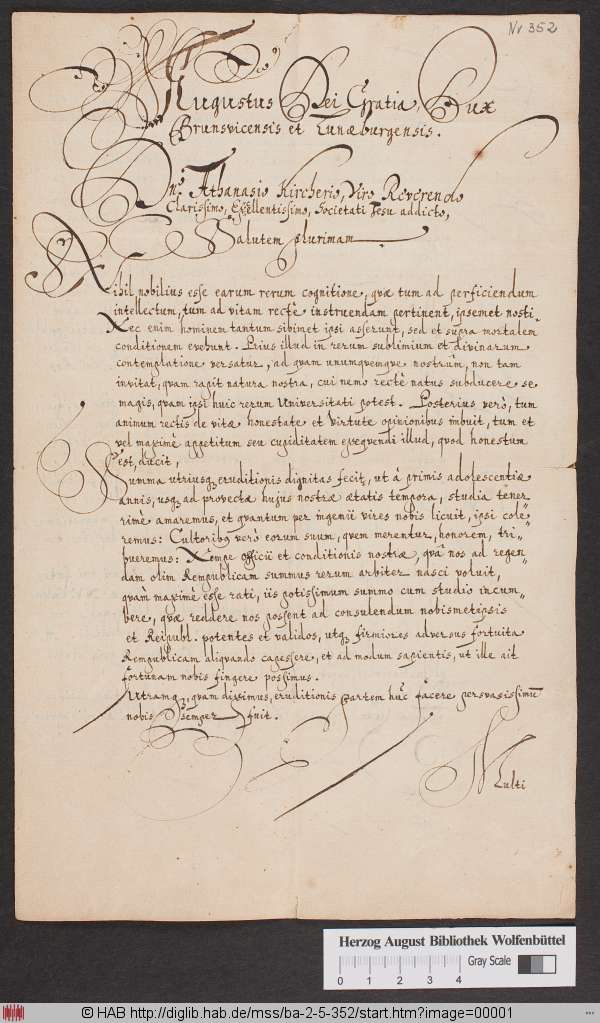 Nr 352
Augustus Dei Gratia Dux
Brunsvicensis et Lunæburgensis.
Dnō. Athanasio Kircherio, Viro Reverendo
Clarissimo, Excellentissimo, Societati Jesu addicto,
Salutem plurimam
Nihil nobilius esse earum rerum cognitione, quæ tum ad perficiendum
intellectum, tum ad vitam rectè instruendam pertinent, ipsemet nosti.
Nec enim hominem tantum sibimet ipsi asserunt, sed et supra mortalem
conditionem evehunt. Prius illud in rerum sublimium et divinarum
contemplatione versatur, ad quam unumquemque nostrûm, non tam
invitat, quam rapit natura nostra, cui nemo rectè natus subducere se
magis, quam ipsi huic rerum Universitati potest. Posterius verò, tum
animum rectis de vitæ honestate et virtute opinionibus imbuit, tum et
vel maximè appetitum seu cupiditatem exequendi illud, quod honestum
est, ducit,
Summa utriusq; eruditionis dignitas fecit, ut à primis adolescentiæ
annis, usq; ad provectæ hujus nostræ ætatis tempora, studia tener-
rimè amaremus, et quantum per ingenii vires nobis licuit, ipsi cole-
remus: Cultoribus verò eorum suum, quem merentur, honorem, tri-
bueremus: Nempe officii et conditionis nostræ, quâ nos ad regen-
dam olim Rempublicam summus rerum arbiter nasci voluit,
quàm maximè esse rati, iis potissimum summo cum studio incum-
bere, quæ reddere nos possent ad consulendum nobismetipsis
et Reipubl. potentes et validos, utq; firmiores adversus fortuita
Rempublicam aliquando capessere, et ad modum sapientis, ut ille ait
fortunam nobis fingere possimus.
Utramq; quam diximus, eruditionis partem huc facere persvasissimū
nobis semper fuit.
Multi
Herzog August Bibliothek Wolfenbüttel
0 1 2 3 4 Gray Scale
© HAB http://diglib.hab.de/mss/ba-2-5-352/start.htm?image=00001